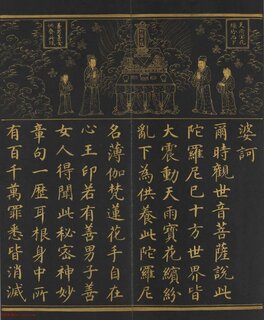 婆訶
爾時觀世音菩薩說此
陀羅尼已十方世界皆
大震動天雨寶花繽紛
亂下為供養此陀羅尼
名薄伽梵蓮花手自在
心王印若有善男子善
女人得聞此秘密神妙
章句一歷耳根身中所
有百千萬罪悉皆消滅